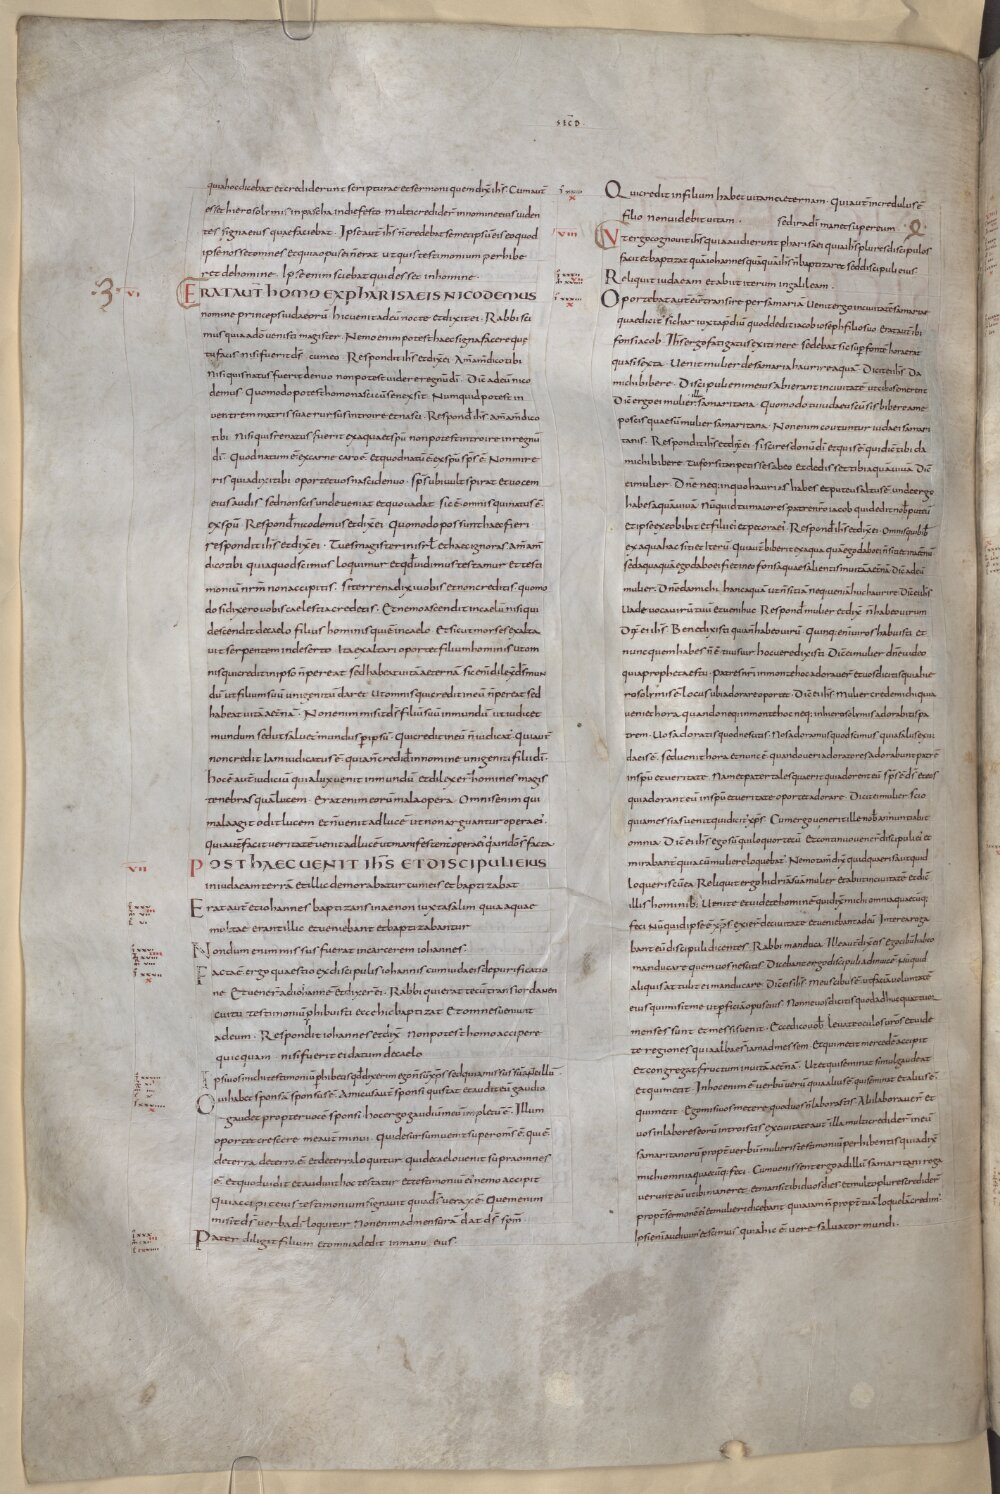 SECD
quia hoc dicebat et crediderunt scripturae et sermoni quem dix̄ ihs̄. Cum aut̄
esset hierosolymis in pascha in die festo multi crediderͬ in nomine eius viden
tes signa eius quae faciebat. Ipse aut̄ ihs̄ n̄ credebat semet ipsū eis eo quod
ipse nosset omnes et quia opus ei n̄ erat ut quis testimonium perhibe
ret de homine. Ipse enim sciebat quid esset in homine.
VI
ERAT AUT̄ HOMO EX PHARISAEIS NICODEMUS
nomine princeps iudaeorū hic venit ad eū nocte et dixit ei. Rabbi sci
mus quia a dō venisti magister. Nemo enim potest haec signa facere quę
tu facis nisi fuerit ds̄ cum eo. Respondit ihs̄ et dix̄ ei. Am̄ am̄ dico tibi
nisi quis natus fuerit denuo non potest videre regnū dī. Dic̄ ad eū nico
demus. Quomodo potest homo nasci cū senex sit. Numquid potest in
ventrem matris suae rursus introire et nasci. Respond̄ ihs̄. am̄ am̄ dico
tibi. nisi quis renatus fuerit ex aqua et spū non potest introire in regnū
dī. Quod natum ē ex carne caro ē. et quod natū ē ex spū sps̄ ē. Non mire
ris quia dixi tibi oportet vos nasci denuo. sps̄ ubi vult spirat et vocem
eius audis sed non scis unde veniat et quo vadat. sic ē omnis qui natus ē
ex spū. Respond̄ nicodemus et dix̄ ei. Quomodo possunt haec fieri
respondit ihs̄ et dix̄ ei. Tu es magister in isrl̄ et haec ignoras. Am̄ am̄
dico tibi quia quod scimus loquimur et qd̄ vidimus testamur et testi
moniū nrm̄ non accipitis. si terrena dixi vobis et non creditis. quomo
do si dixero vobis caelestia credetis. Et nemo ascendit in caelū nisi qui
descendit de caelo filius hominis qui ē in caelo. Et sicut moyses exalta
vit serpentem in deserto. Ita exaltari oportet filium hominis ut om
nis qui credit in ipso n̄ pereat sed habeat vitā aeternā. sic en̄ dilex̄ ds̄ mun
dū ut filium suū unigenitū daret. Ut omnis qui credit in eū n̄ pereat sed
habeat vitā aet̄nā. Non enim misit ds̄ filiū suū in mundū ut iudicet
mundum sed ut salvet mundus p̄ ipsū. Qui credit in eū n̄ iudicat̄. Qui aut̄
non credit iam iudicatus ē quia n̄ credid̄ in nomine unigeniti filii dī.
hoc ē aut̄ iudiciū quia lux venit in mundū et dilexer̄ homines magis
tenebras quā lucem. Erat enim eorū mala opera. Omnis enim qui
mala agit odit lucem et n̄ venit ad lucē ut non arguantur opera ei᾽.
Qui aut̄ facit veritatē venit ad lucē ut manifestent̄ opera ei᾽ quia in dō s̄ facta
VII
POST HAEC UENIT IHS̄ ET DISCIPULI EIUS
in iudaeam terrā et illic demorabatur cum eis et baptizabat
Erat aut̄ et iohannes baptizans in aenon iuxta salim quia aquae
multae erant illic et veniebant et baptizabantur
Nondum enim missus fuerat in carcerem iohannes.
Facta ē ergo quaestio ex discipulis iohannis cum iudaeis de purificatio
ne. Et venerͬ ad iohannē et dixerͬ ei. Rabbi qui erat tecū trans iordanen
cui tu testimoniū p̄hibuisti ecce hic baptizat et omnes veniunt
ad eum. Respondit iohannes et dix̄. Non potest homo accipere
quicquam nisi fuerit ei datum de caelo
Ipsi vos mihi testimoniū p̄hibetis qd̄ dixerim ego n̄ sū xps̄ sed quia missus sū ante illū.
Qui habet sponsā sponsus ē. Amicus aut̄ sponsi qui stat et audit eū gaudio
gaudet propter vocē sponsi. hoc ergo gaudiū meū impletū ē. Illum
oportet crescere me aut̄ minui. Qui desursum venit super om̄s ē. qui ē
de terra de terra ē. et de terra loquitur. qui de caelo venit supra omnes
ē. Et quod vidit et audivit hoc testatur et testimoniū ei᾽ nemo accipit
Qui accipit eius testimonium signavit quia ds̄ verax ē. Quem enim
misit ds̄ verba dī loquitur. Non enim ad mensurā dat ds̄ spm̄.
Pater diligit filium et omnia dedit in manu eius.
Qui credit in filium habet vitam aeternam. Qui aut̄ incredulus ē
filio non videbit vitam. sed ira dī manet super eum.
VIII
Ut ergo cognovit ihs̄ quia audierunt pharisaei quia ihs̄ plures discipulos
facit et baptizat quā iohannes quāquā ihs̄ n̄ baptizaret sed discipuli eius
Reliquit iudaeam et abiit iterum in galileam.
Oportebat aut̄ eū transire per samariā. Uenit ergo in civitatē samariae
quae dicit̄ sichar iuxta p̄diū quod dedit iacob ioseph filio suo. Erat aut̄ ibi
fons iacob. Ihs̄ ergo fatigatus ex itinere sedebat sic sup̄ fontē. hora erat
quasi sexta. Uenit mulier de samaria haurire aquā. Dicit ei ihs̄. Da
michi bibere. Discipuli enim eius abierant in civitatē ut cibos emerent
Dic̄ ergo ei mulier illa samaritana. Quomodo tu iudaeus cū sis bibere a me
poscis quae sū mulier samaritana. Non enim coutuntur iudaei samari
tanis. Respondit ihs̄ et dix̄ ei. si scires donū dī et quis ē qui dic̄ tibi da
michi bibere. Tu forsitan petisses ab eo et dedisset tibi aquā vivā. Dic̄
ei mulier. Dn̄e neq; in quo haurias habes et puteus altus ē. unde ergo
habes aquā vivā. Nūquid tu maior es patre nr̄o iacob qui dedit nob̄ puteū
et ipse ex eo bibit et filii ei᾽ et pecora ei᾽. Respond̄ ihs̄ et dix̄ ei. Omnis qui bib̄
ex aqua hac sitiet iterū. Qui aut̄ biberit ex aqua quā ego dabo ei n̄ sitiet in aet̄nū
sed aqua quā ego dabo ei fiet in eo fons aquae salientis in vitā aet̄nā. Dic̄ ad eū
mulier. Dn̄e da michi hanc aquā ut n̄ sitiā neq; veniā huc haurire. Dic̄ ei ihs̄
Uade voca virū tuū et veni huc. Respond̄ mulier et dix̄. n̄ habeo virum
Dic̄ ei ihs̄. Bene dixisti quia n̄ habeo virū. Quinq; en̄ viros habuisti. et
nunc quem habes n̄ ē tuus vir. hoc vere dixisti. Dic̄ ei mulier. dn̄e video
quia propheta es tu. Patres nr̄i in monte hoc adoraver̄ et vos dicitis quia hie
rosolymis ē locus ubi adorare oportet. Dic̄ ei ihs̄. Mulier crede michi quia
veniet hora quando neq; in monte hoc neq; in hierosolymis adorabitis pa
trem. Uos adoratis quod nescitis. Nos adoramus quod scimus. quia salus ex iu
daeis ē. sed venit hora et nunc ē quando veri adoratores adorabunt patrē
in spū et veritate. Nam et pater tales quaerit qui adorent eū. sps̄ ē ds̄ et eos
qui adorant eū in spū et veritate oportet adorare. Dicit ei mulier. scio
quia messias venit qui dicit̄ xps̄. Cum ergo venerit ille nob̄ annuntiabit
omnia. Dic̄ ei ihs̄ ego sū qui loquor tecū. Et continuo vener̄ discipuli ei᾽ et
mirabant̄ quia cū muliere loquebat̄. Nemo tam̄ dix̄ quid quaeris aut quid
loqueris cū ea. Reliquit ergo hidriā suā mulier et abiit in civitatē et dic̄
illis hominib;. Uenite et videte hominē qui dix̄ michi omnia quaecūq;
feci. Nūquid ipse ē xps̄. exier̄ de civitate et veniebant ad eū. Interea roga
bant eū discipuli dicentes. Rabbi manduca. Ille aut̄ dix̄ eis. ego cibū habeo
manducare quem vos nescitis. Dicebant ergo discipuli ad invicē. Nūquid
aliquis attulit ei manducare. Dic̄ eis ihs̄. Meus cibus ē ut faciā voluntatē
eius qui misit me ut p̄ficiā opus eius. Nonne vos dicitis quod adhuc quattuor
menses sunt et messis venit. Ecce dico vob̄ levate oculos vr̄os et vide
te regiones quia albae s̄ iam ad messem. Et qui metit mercedē accipit
et congregat fructum in vitā aet̄nā. Ut et qui seminat simul gaudeat
et qui metit. In hoc enim ē verbū verū quia alius ē qui seminat et alius ē
qui metit. Ego misi vos metere quod vos n̄ laborastis. Alii laboraver̄ et
vos in labores eorū introistis. ex civitate aut̄ illa multi credider̄ in eū
samaritanorū propt̄ verbū mulieris testimoniū perhibentis quia dix̄
michi omnia quaecūq; feci. Cum venissent ergo ad illū samaritani roga
verunt eū ut ibi maneret. Et mansit ibi duos dies et multo plures credider̄
propt̄ sermonē ei᾽ et mulieri dicebant. quia iam n̄ propt̄ tuā loquelā credim᾽.
Ipsi en̄ audivim᾽ et scimus quia hic ē vere salvator mundi.